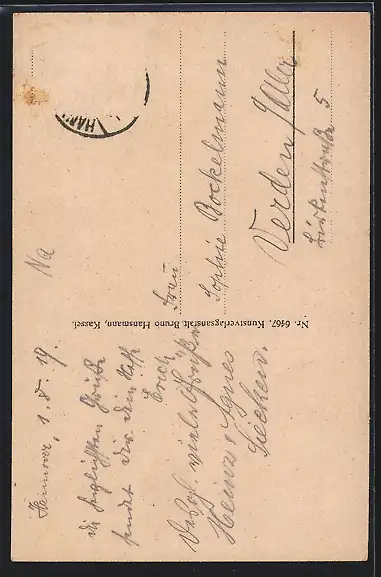 Hannover, 1. 8. 19.
die herzlichsten Grüße
sendet Dir Dein
Erich
Desgl. viele Grüße
Heinz u. Agnes
Na
Frau
Sophie Bockelmann
Verden/Aller
5
Nr. 6467. Kunstverlagsanstalt Bruno Hansmann, Kassel.
HAN